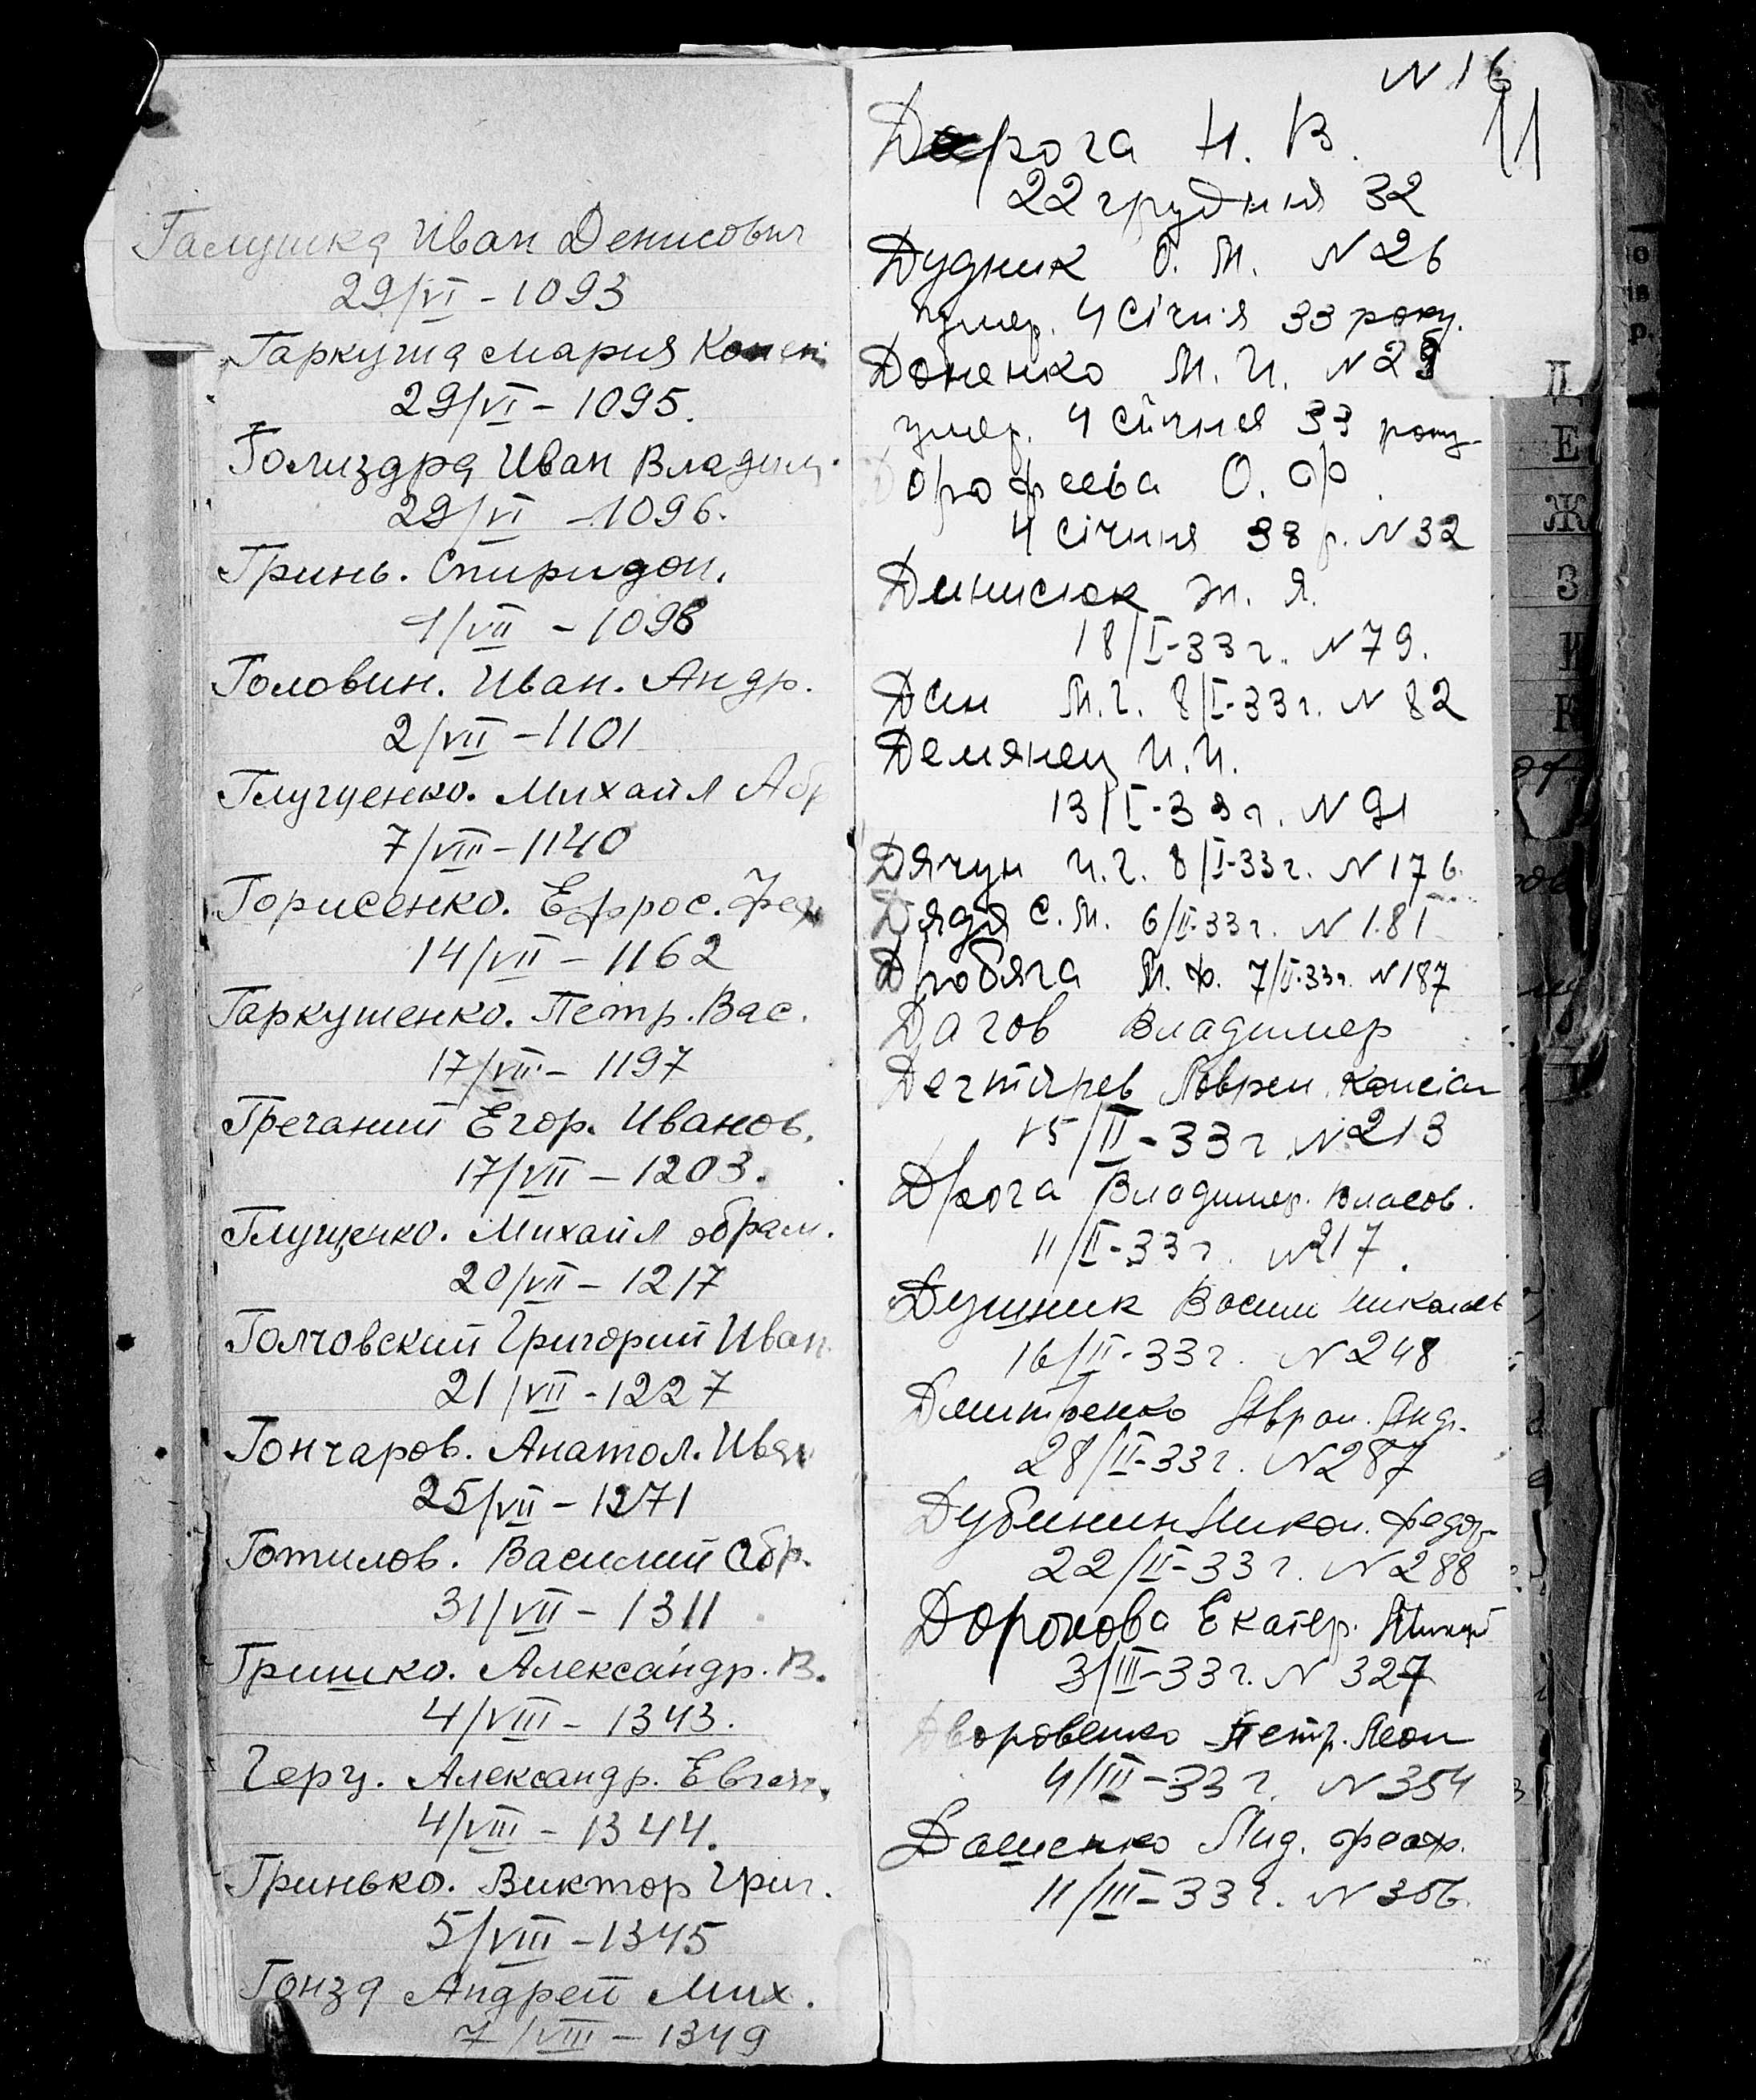 Галушка Иван Денисович
29/VI - 1093
Гаркуша Мария
29/VI - 1095.
Голиздра Иван Владим.
29/VI - 1096.
Гринь. Спиридон.
1/VII - 1098
Головин. Иван. Андр.
2/VII - 1101
Глущенко. Михаил Абр
7/VIII - 1140
Горисенко. Ефрос.
14/VII - 1162
Гаркушенко. Петр. Вас.
17/VII - 1197
Гречаний Егор. Иванов.
17/VII - 1203.
Глущенко. Михаил Абрам.
20/VII - 1217
Голчовский Григорий Иван
21/VII - 1227
Гончаров. Анатол. Иван
25/VII - 1271
Готилов. Василий Абр.
31/VII - 1311
Гришко. Александр. В.
4/VIII - 1343.
Герц. Александр. Евген.
4/VIII - 1344.
Гринько. Виктор Григ.
5/VIII - 1345
Гонза Андрей Мих.
7/VIII - 1349
N 16
11
Дорога Н. В.
22 грудння 32
Дудник О. М. N 26
умер. 4 Січня 33 року.
Доненко М. И. N 29
умер. 4 січня 33 року
Дорофеева О. Ф.
4 січння 33 р. N 32
Динисюк М. Я.
18/I-33 г. N 79.
Дин М. Г. 8/I-33 г. N 82
Демянец И. И.
13/I-33 г. N 91
Дячун И. Г. 8/I-33 г. N 176.
Дядя С. М. 6/II-33 г. N 181
Дробяга М. Ф. 7/II-33 г. N 187
Дагов Владимер
Дегтярев Лаврен.
15/II-33 г N 213
Дрога Владимер. Власов.
11/II-33 г. N 217.
Душник Васили Николаев
16/II-33 г. N 248
Дмитренко Авра. Анд.
28/II-33 г. N 287
Дубинин Никол. Федор
22/II-33 г. N 288
Доронова Екатер.
3/III-33 г. N 327
Дворовенко Петр. Леон
4/III-33 г. N 354
Дашенко Лид.
11/III-33 г. N 356.
Д
Е
Ж
З
И
К